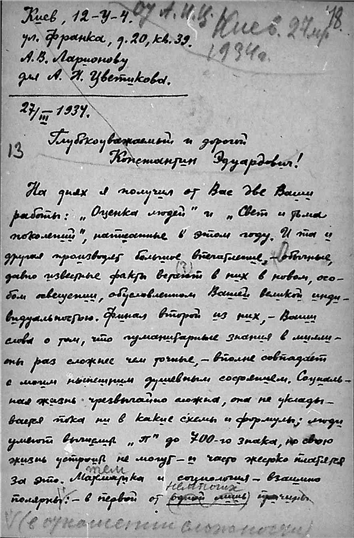 от А.Н.Ц. Киев. 27 мр. 1934г.
18.
Киев, 12-У-4.
ул. Франка, д. 20, кв. 39.
А.В. Ларионову
для А. Н. Цветикова.
27/III 1934.
13
Глубокоуважаемый и дорогой
Константин Эдуардович!
На днях я получил от Вас две Ваши
работы: „Оценка людей" и „Свет и тьма
поколений", написанные в этом году. И та и
другая производят большое впечатление, – обычные,
давно известные факты в них в новом, осо-
бом освещении, обусловленном Вашей великой инди-
видуальностью. Финал второй из них, – Ваши
слова о том, что гуманитарные знания в милли-
оны раз сложнее чем точные, – вполне совпадает
с моим нынешним душевным состоянием. Социаль-
ная жизнь чрезвычайно сложна, она не уклады-
вается пока ни в какие схемы и формулы; люди
умеют вычислить „π" до 700-го знака, но свою
жизнь устроить не могут – и часто жестоко платятся
за это. Математика и социология – взаимно
полярны: – в первой от немногих одной лишь причины
(в отношении сложности)